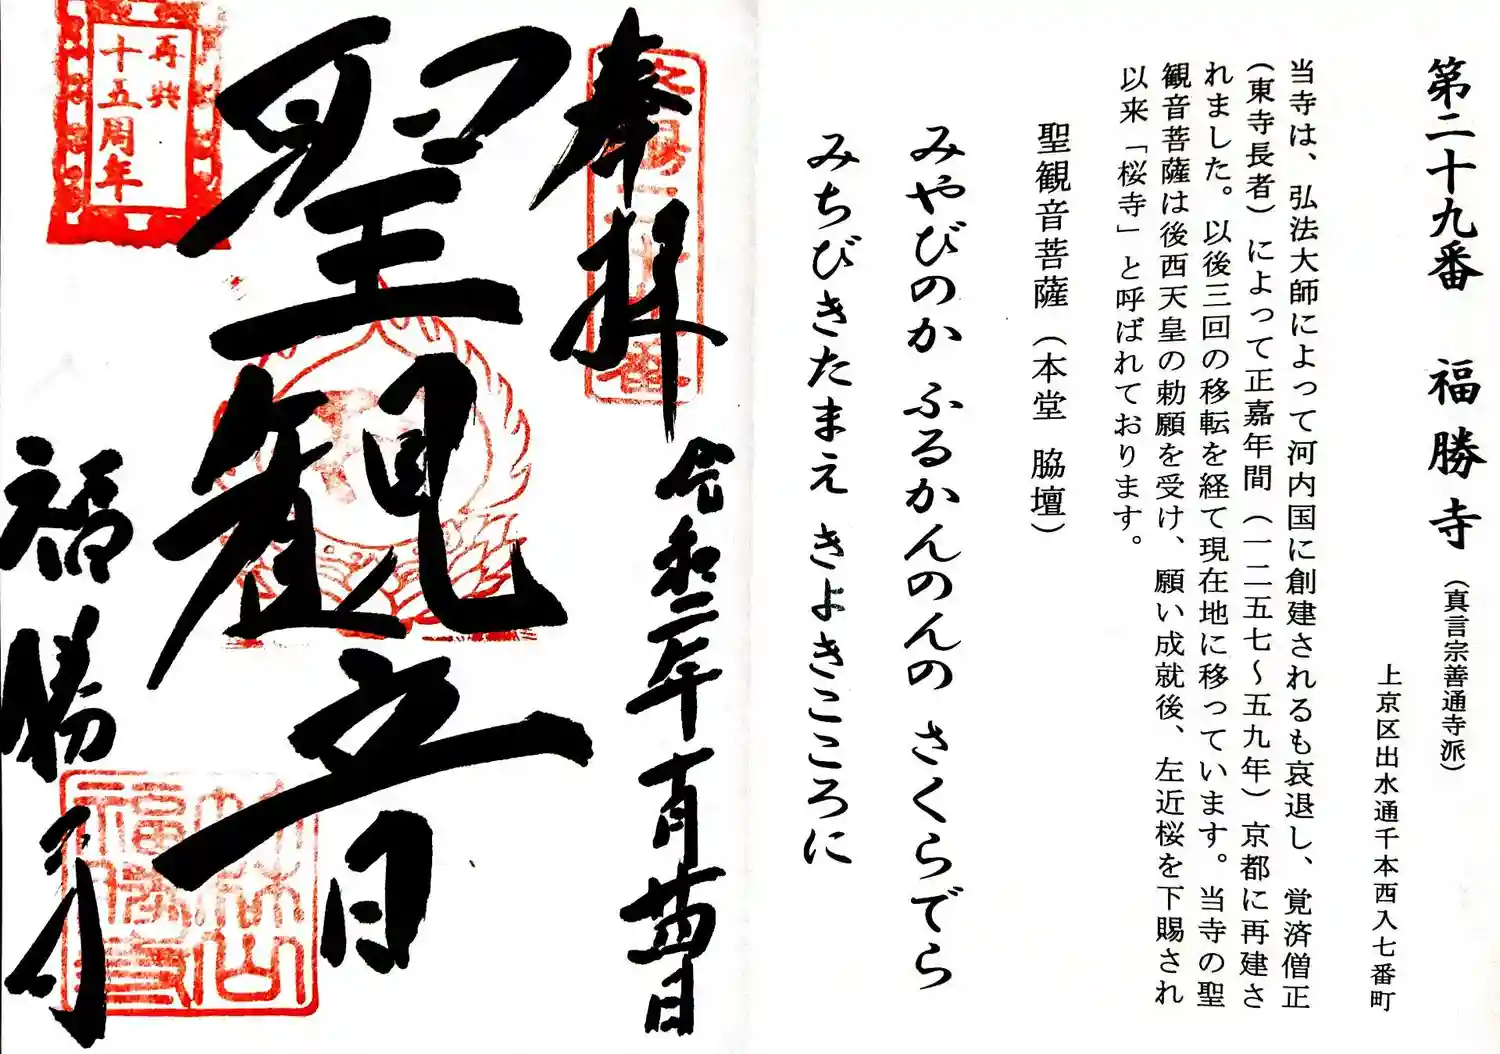 第二十九番 福勝寺（真言宗善通寺派）
上京区出水通千本西入七番町
当寺は、弘法大師によって河内国に創建されるも哀退し、覚済僧正
（東寺長者）によって正嘉年間（一二五七～五九年）京都に再建さ
れました。以後三回の移転を経て現在地に移っています。当寺の聖
観音菩薩は後西天皇の勅願を受け、願い成就後、左近桜を下賜され
以来「桜寺」と呼ばれております。
聖観音菩薩（本堂 脇壇）
みやびのか ふるかんのんの さくらでら
みちびきたまえ きよきこころに
奉拝
令和二年十一月廿四日
聖観音
福勝寺
再興
十五周年